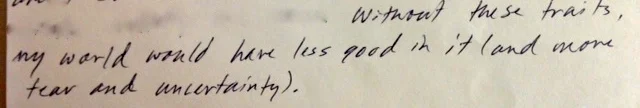 Without these traits,
my world would have less good in it (and more
fear and uncertainty).